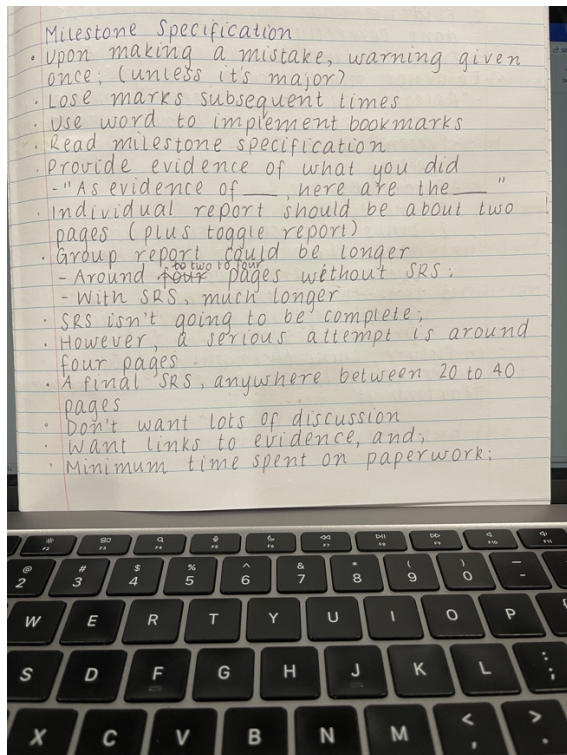 Milestone Specification
• Upon making a mistake, warning given
once; (unless it's major?)
• Lose marks subsequent times
• Use word to implement bookmarks
• Read milestone specification
• Provide evidence of what you did
-"As evidence of ___, here are the ___"
• Individual report should be about two
pages (plus toggle report)
• Group report could be longer
- Around to two to four pages without SRS;
- With SRS, much longer
• SRS isn't going to be complete;
• However, a serious attempt is around
four pages
• A final SRS, anywhere between 20 to 40
pages
• Don't want lots of discussion
• Want links to evidence, and;
• Minimum time spent on paperwork;
F2 F3 F4 F5 F6 F7 F8 F9 F10 F11
@ # $ % ^ & * ( ) _
2 3 4 5 6 7 8 9 0 -
W E R T Y U I O P {
S D F G H J K L : ;
X C V B N M < , > .